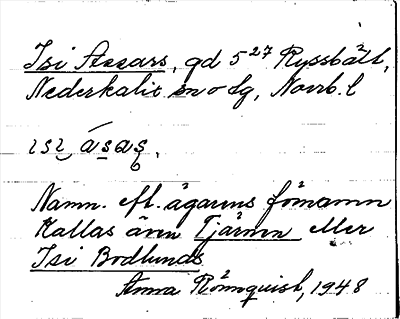 Isi Assars, gd 5²⁷ Ryssbält,
Nederkalix sn o tg, Norrb. l
ısı ásas.
Namn. eft. ägarens förnamn
Kallas även Tjärnen eller
Isi Bodlunds
Anna Rönnquist, 1948